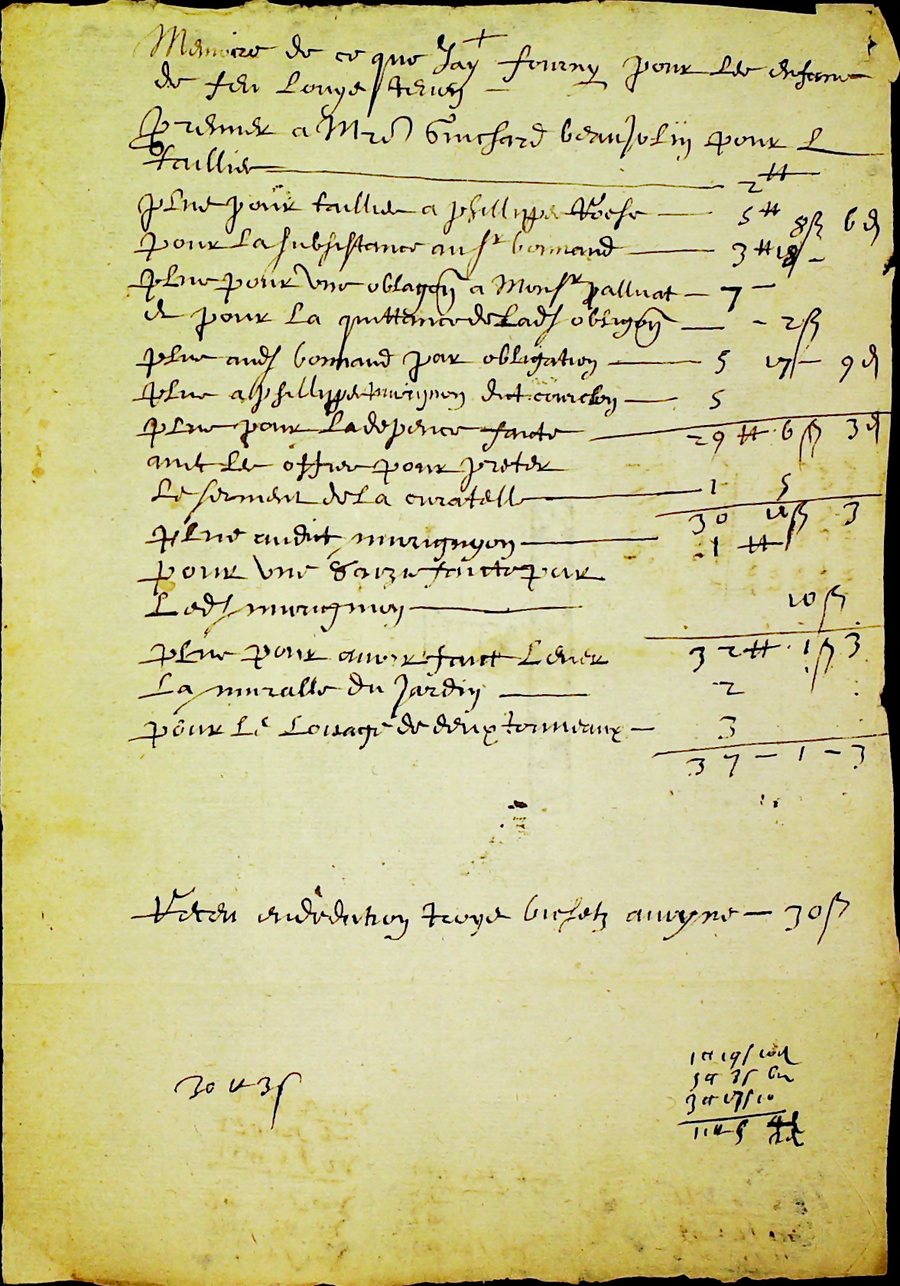 Memoire de ce que Jay fourny pour les enfans
de feu Louys
premier a Mre Guichard beaujolin pour L
taillies 2 ₶
plus pour taillies a phillippe Roche 5 ₶ 8 ß 6 d
pour La subsistance au sr bonnand 3 ₶ 18 -
plus pour une obligaōn a Monsr palluat - 7 -
et pour La quittance de Lads obligōn - 2 ß
plus auds bonnand par obligation 5 17 - 9 d
plus a phillippe murignon dict courcbon 5
plus pour La depence faicte 29 ₶ 6 ß 3 d
avec Les offies pour preter
Le serment de La curatelle 1 5
30 11 ß 3
plus audict murignyon 1 ₶
pour une faicte par
Leds murignion 10 ß
32 ₶ 1 ß 3
plus pour avoir faict Lever
La muralle du Jardin 2
pour Le Louage de deux tonneaux - 3
37 - 1 - 3
Receu en dedution troys bichetz avoyne - 30 ß
30 ₶ 3 s
1 ₶ 19 s 10 d
5 ₶ 3 s 6 d
3 ₶ 17 s 10
11 ₶ 5